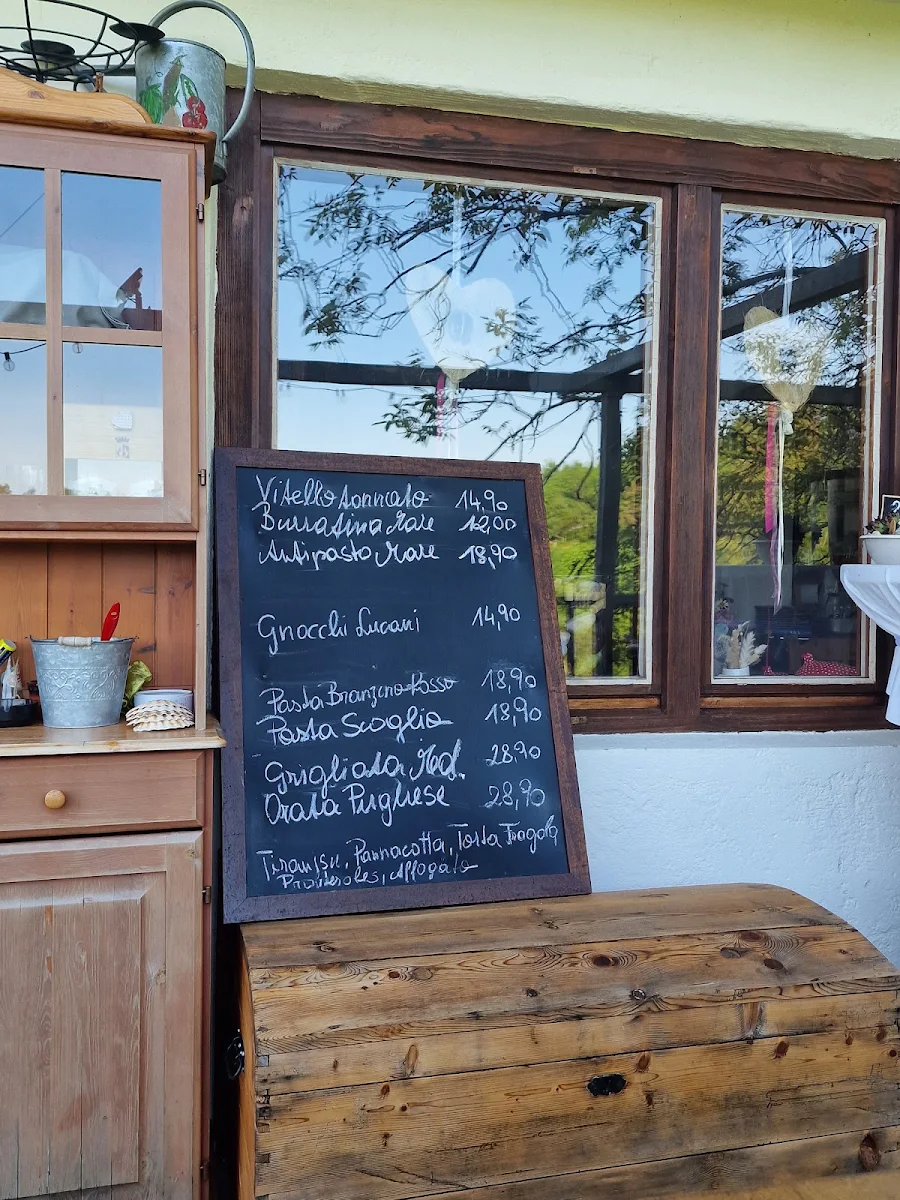 Vitello tonnato 14,90
Burratina Mare 12,00
Antipasto Mare 18,90
Gnocchi Lucani 14,90
Pasta Branzino Rosso 18,90
Pasta Scoglio 18,90
Grigliata Med. 28,90
Orata Pugliese 28,90
Tiramisu, Pannacotta, Torta Fragola
Profiteroles, Affogato